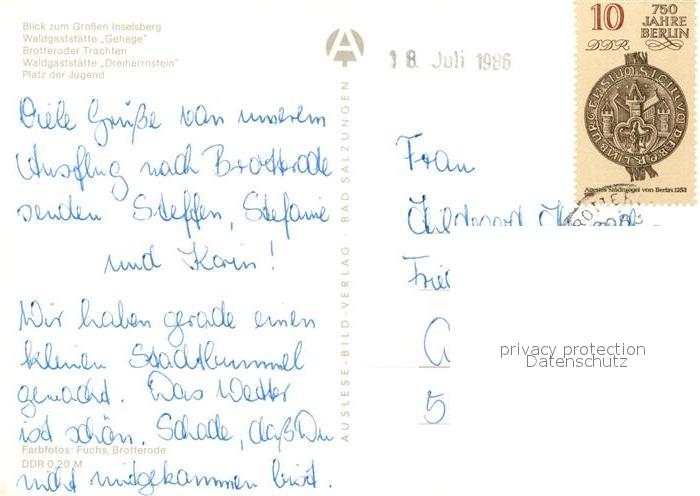 Blick zum Großen Inselsberg
Waldgaststätte „Gehege"
Brotteroder Trachten
Waldgaststätte „Dreiherrnstein"
Platz der Jugend
Viele Grüße von unserem
Ausflug nach Brotterode
senden Steffen, Stefanie
und Karin!
Wir haben gerade einen
kleinen Stadtbummel
gemacht. Das Wetter
ist schön. Schade, daß Du
nicht mitgekommen bist.
Farbfotos: Fuchs, Brotterode
DDR 0,20 M
AUSLESE-BILD-VERLAG · BAD SALZUNGEN
A
18. Juli 1986
10
750
JAHRE
BERLIN
DDR
Ältestes Stadtsiegel von Berlin 1253
Frau
5
privacy protection
Datenschutz